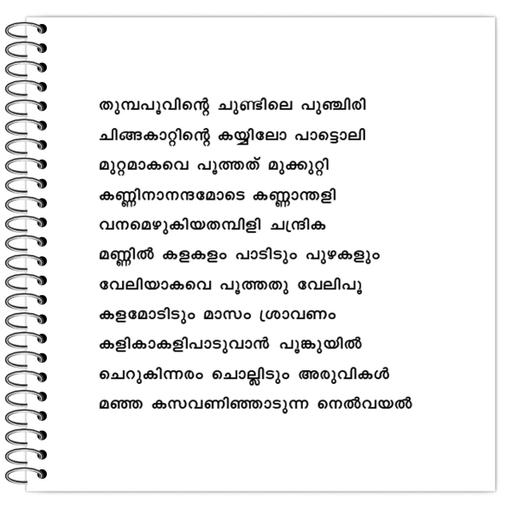 തുമ്പപൂവിന്റെ ചുണ്ടിലെ പുഞ്ചിരി
ചിങ്ങകാറ്റിന്റെ കയ്യിലോ പാട്ടൊലി
മുറ്റമാകവെ പൂത്തത് മുക്കുറ്റി
കണ്ണിനാനന്ദമോടെ കണ്ണാന്തളി
വനമെഴുകിയതമ്പിളി ചന്ദ്രിക
മണ്ണിൽ കളകളം പാടിടും പുഴകളും
വേലിയാകവെ പൂത്തതു വേലിപൂ
കളമോടിടും മാസം ശ്രാവണം
കളികാകളിപാടുവാൻ പൂങ്കുയിൽ
ചെറുകിന്നരം ചൊല്ലിടും അരുവികൾ
മഞ്ഞ കസവണിഞ്ഞാടുന്ന നെൽവയൽ